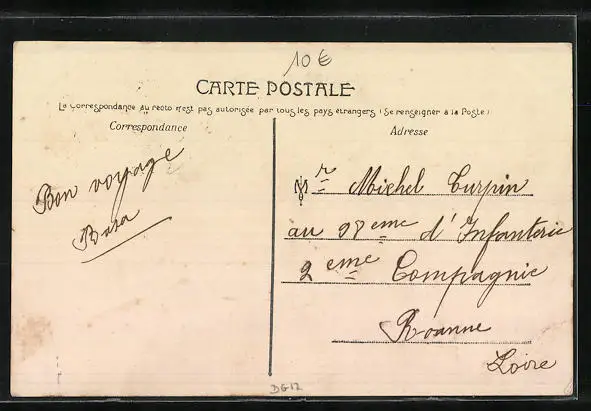 10€
CARTE POSTALE
La Correspondance au recto n'est pas autorisée par tous les pays étrangers (Se renseigner à la Poste)
Correspondance
Adresse
Bon voyage
Mr Michel Turpin
au 98eme d'Infanterie
2eme Compagnie
Roanne
Loire
DG12